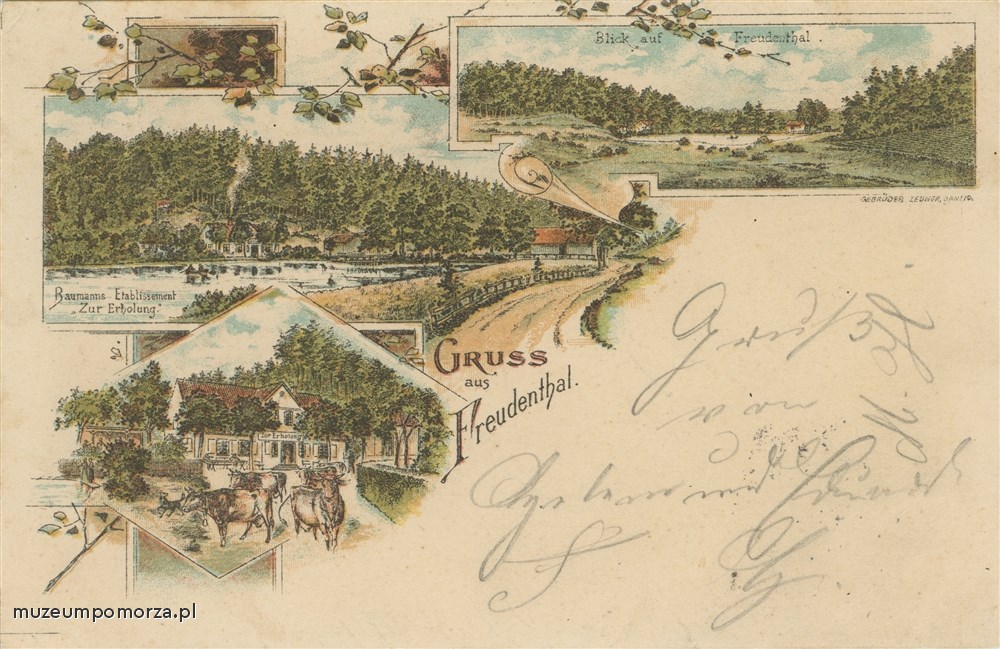 Blick auf Freudenthal.
GEBRÜDER ZEUNER, DANZIG.
Baumanns Etablissement
„Zur Erholung."
GRUSS
aus
Freudenthal.
Zur Erholung
Gruß
von
und
muzeumpomorza.pl